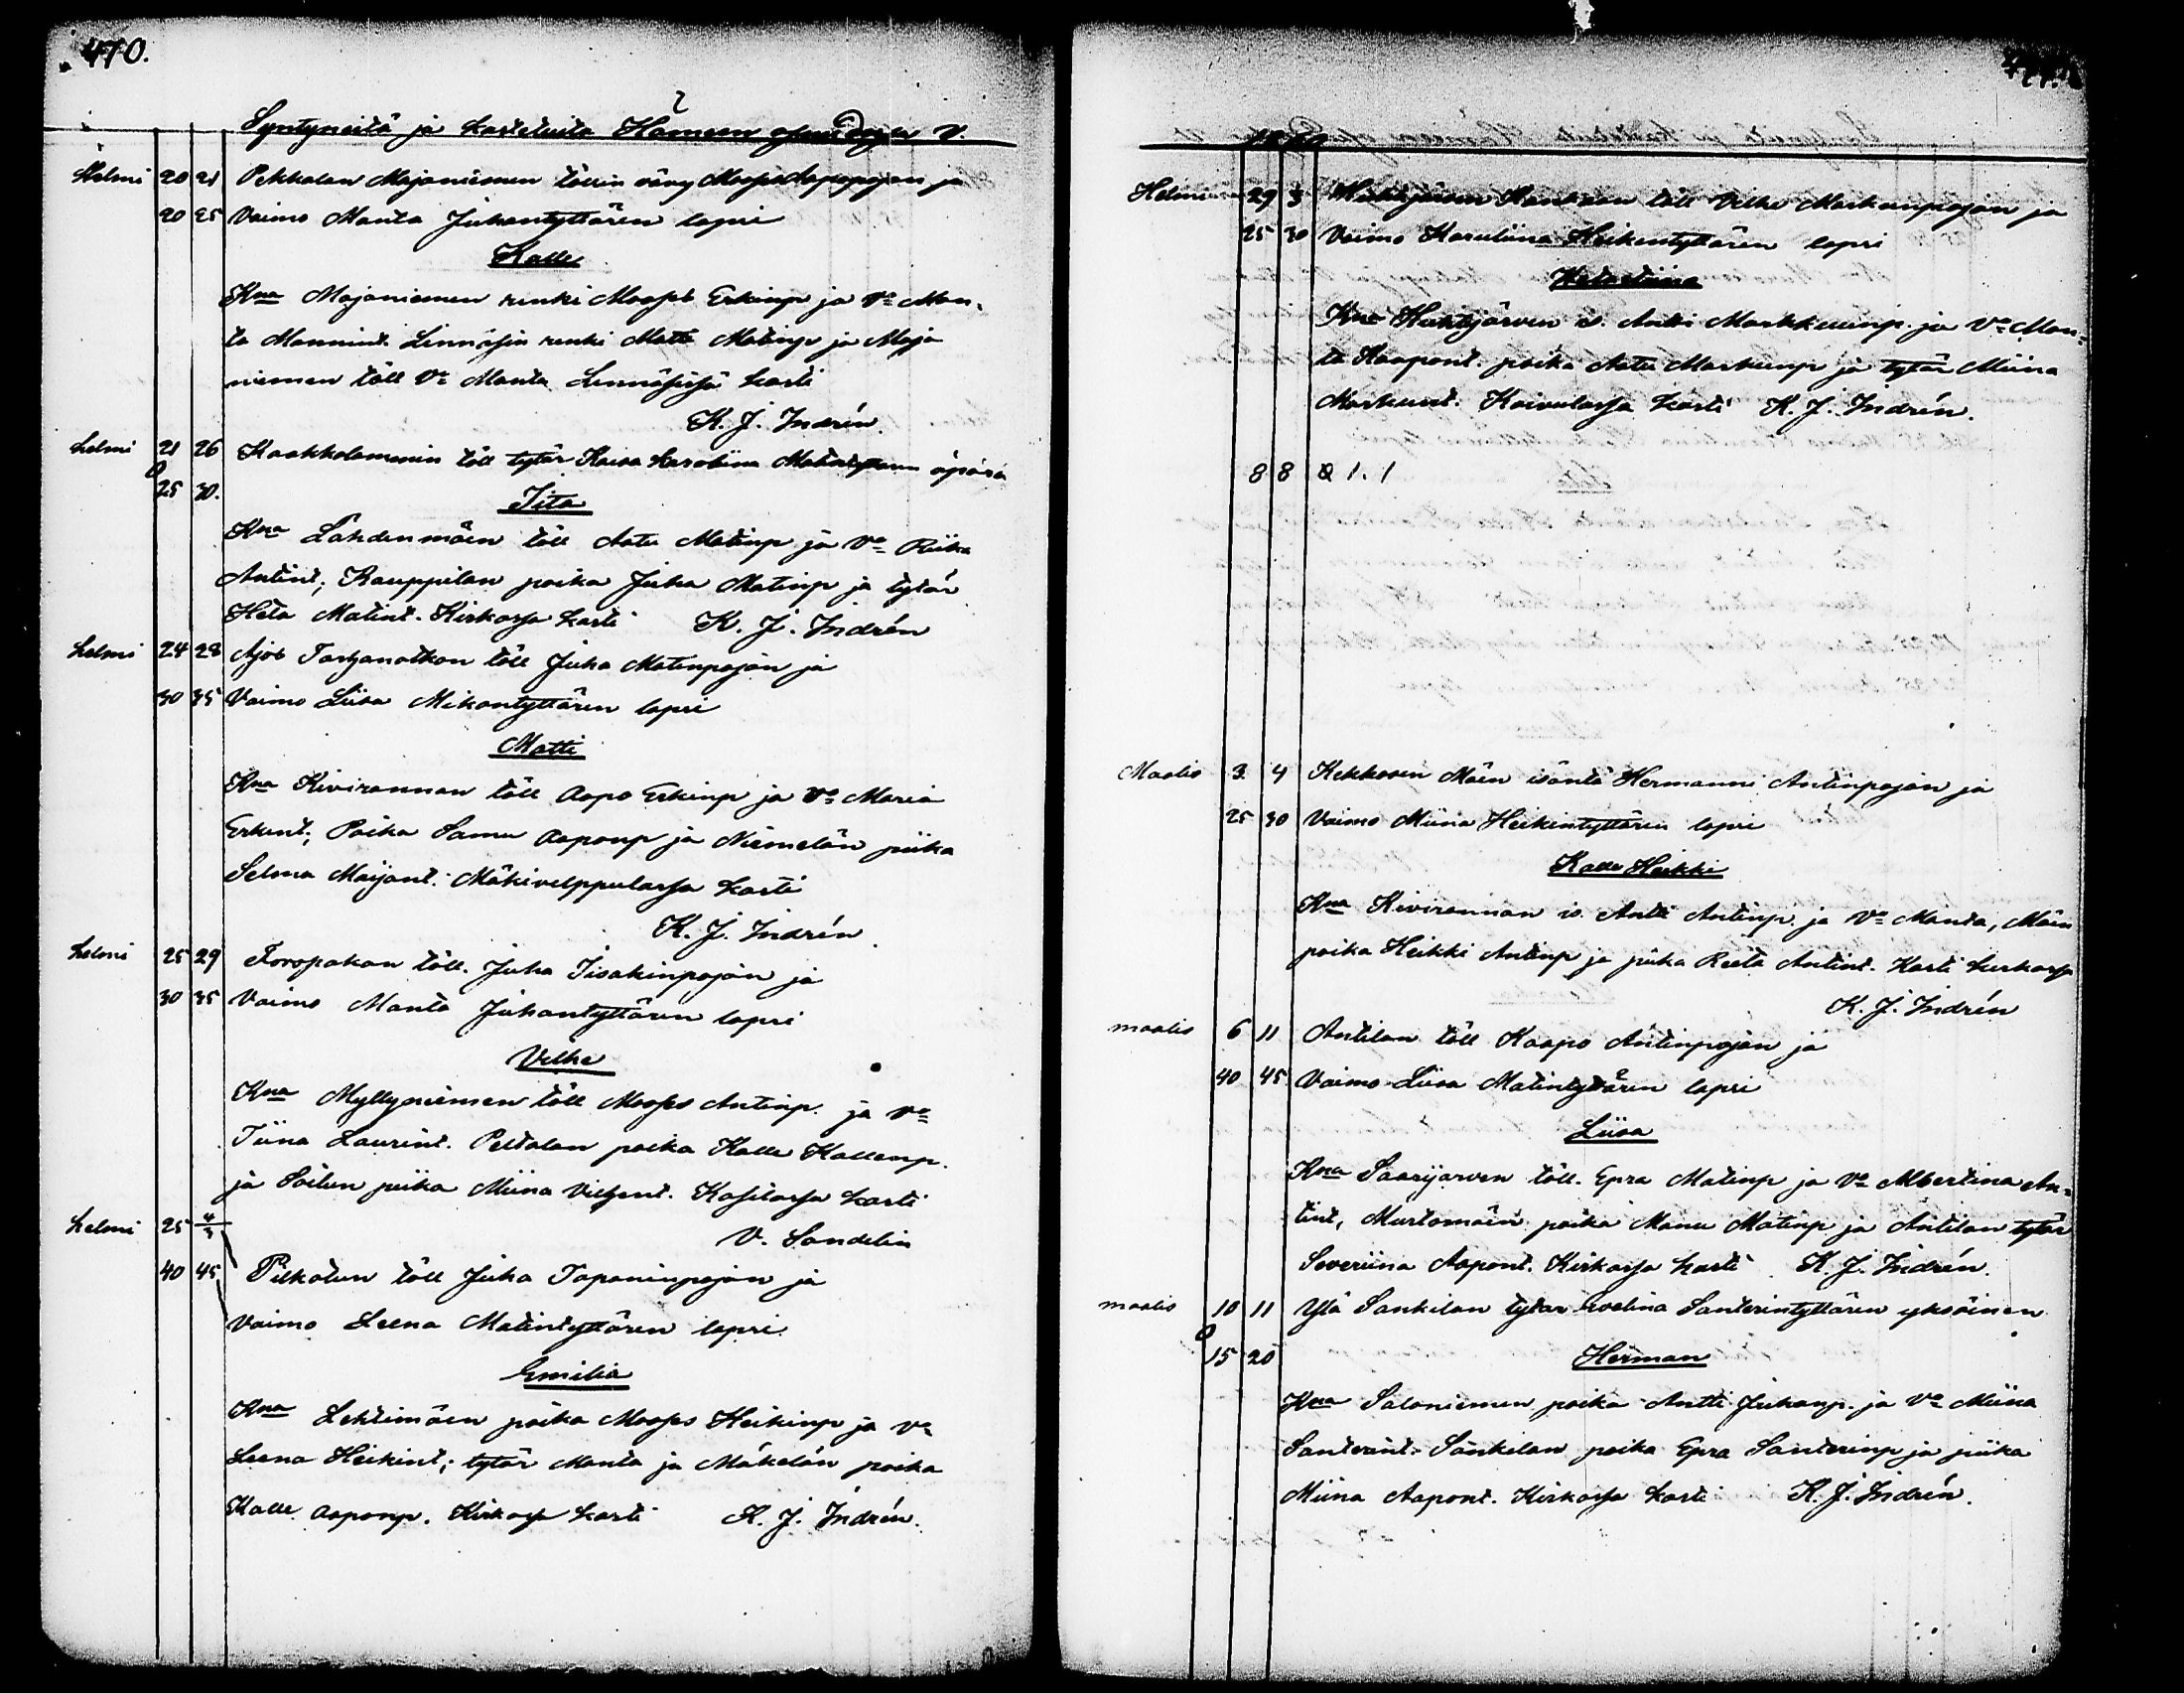 470.
Syntyneitä ja kasteluita Hämeen V.
Helmi 20 21 Pekkalan Majaniemen töllin väny Moses Aapopojan ja
20 25 Vaimo Manta Juhantyttären lapsi
Kalle
Kna Majaniemen renki Moses Erkinp ja Vo Man-
ta Mannint. Linnäsin renki Matti Matinp ja Maja
niemen töll Vo Manta Linnäsissä kasti
K. J. Indrén
helmi 21 26 Kaakkolammin töll tytär Kaisa Karoliina äpärä
25 30. Iita
Kna Lahdenmäen töll Aatu Matinp ja Vo Riika
Antint; Kauppilan poika Juha Matinp ja tytär
Heta Matint. Kirkossa kasti K. J. Indrén
helmi 24 28 Ajos Tarjanatkon töll Juha Matinpojan ja
30 35 Vaimo Liisa Mikontyttären lapsi
Matti
Kna Kivirannan töll Aapo Erkinp ja Vo Maria
Erkint; Poika Samu Aaponp ja Niemelän piika
Selma Maijant. Mäkivelppulassa kasti
K. J. Indrén
helmi 25 29 Foropakan töll. Juha Iisakinpojan ja
30 35 Vaimo Manta Juhantyttären lapsi
Vilhe
Kna Myllyniemen töll Moses Antinp. ja Vo
Tiina Laurint. Peltolan poika Kalle Kallenp.
ja Soilun piika Miina Viljent. Kasitassa kasti
V. Sandelin
helmi 25 4/3
40 45 Pilkatun töll Juha Tapaninpojan ja
Vaimo Leena Matintyttären lapsi.
Emilia
Kna Lehtimäen poika Moses Heikinp ja Vo
Leena Heikint; tytär Manta ja Mäkelän poika
Kalle Aaponp. Kirkossa kasti K. J. Indrén.
Helmi 29 3 töll Vilhe Markunpojan ja
25 30 Vaimo Karuliina Heikintyttären lapsi
Kna Huhtijärven is. Antti Markkuunp. ja Vo Man-
ta Kaapont. poika Aatu Markunp ja tytär Miina
Markunt. Koivulassa kasti K. J. Indrén.
8 8 Q 1. 1
Maalis 3 4 Kekkosen Mäen isäntä Hermanni Antinpojan ja
25 30 Vaimo Miina Heikintyttären lapsi
Kalle Heikki
Kna Kivirannan is. Antti Antinp. ja Vo Manta, Mäen
poika Heikki Antinp ja piika Reeta Antint. Kasti kirkossa
K. J. Indrén
maalis 6 11 Antilan töll Kaapo Antinpojan ja
40 45 Vaimo Liisa Matintyttären lapsi
Liisa
Kna Saarijärven töll. Epra Matinp ja Vo Albertina An-
tint, Murtomäen poika Manu Matinp ja Antilan tytär
Severiina Aapont. Kirkossa kasti K. J. Indrén.
maalis 10 11 Ylä Sankilan tytär Evelina Santerintyttären yksöinen
15 20 Herman
Kna Saloniemen poika Antti Juhanp. ja Vo Miina
Santerint. Sankilan poika Epra Santerinp ja piika
Miina Aapont. Kirkossa kasti K. J. Indrén.